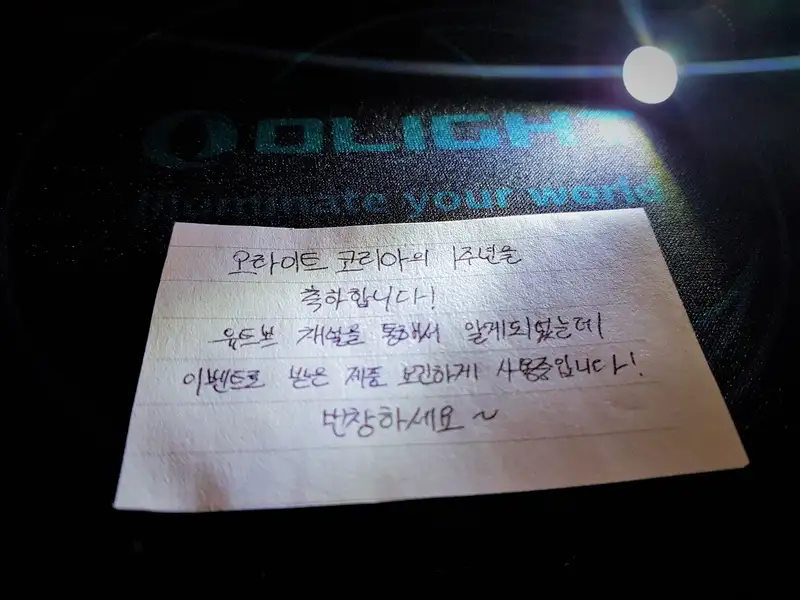 OLIGHT
Illuminate your world
오라이트 코리아의 1주년을
축하합니다!
유튜브 채널을 통해서 알게되었는데
이벤트로 받은 제품 요긴하게 사용중입니다!
번창하세요~